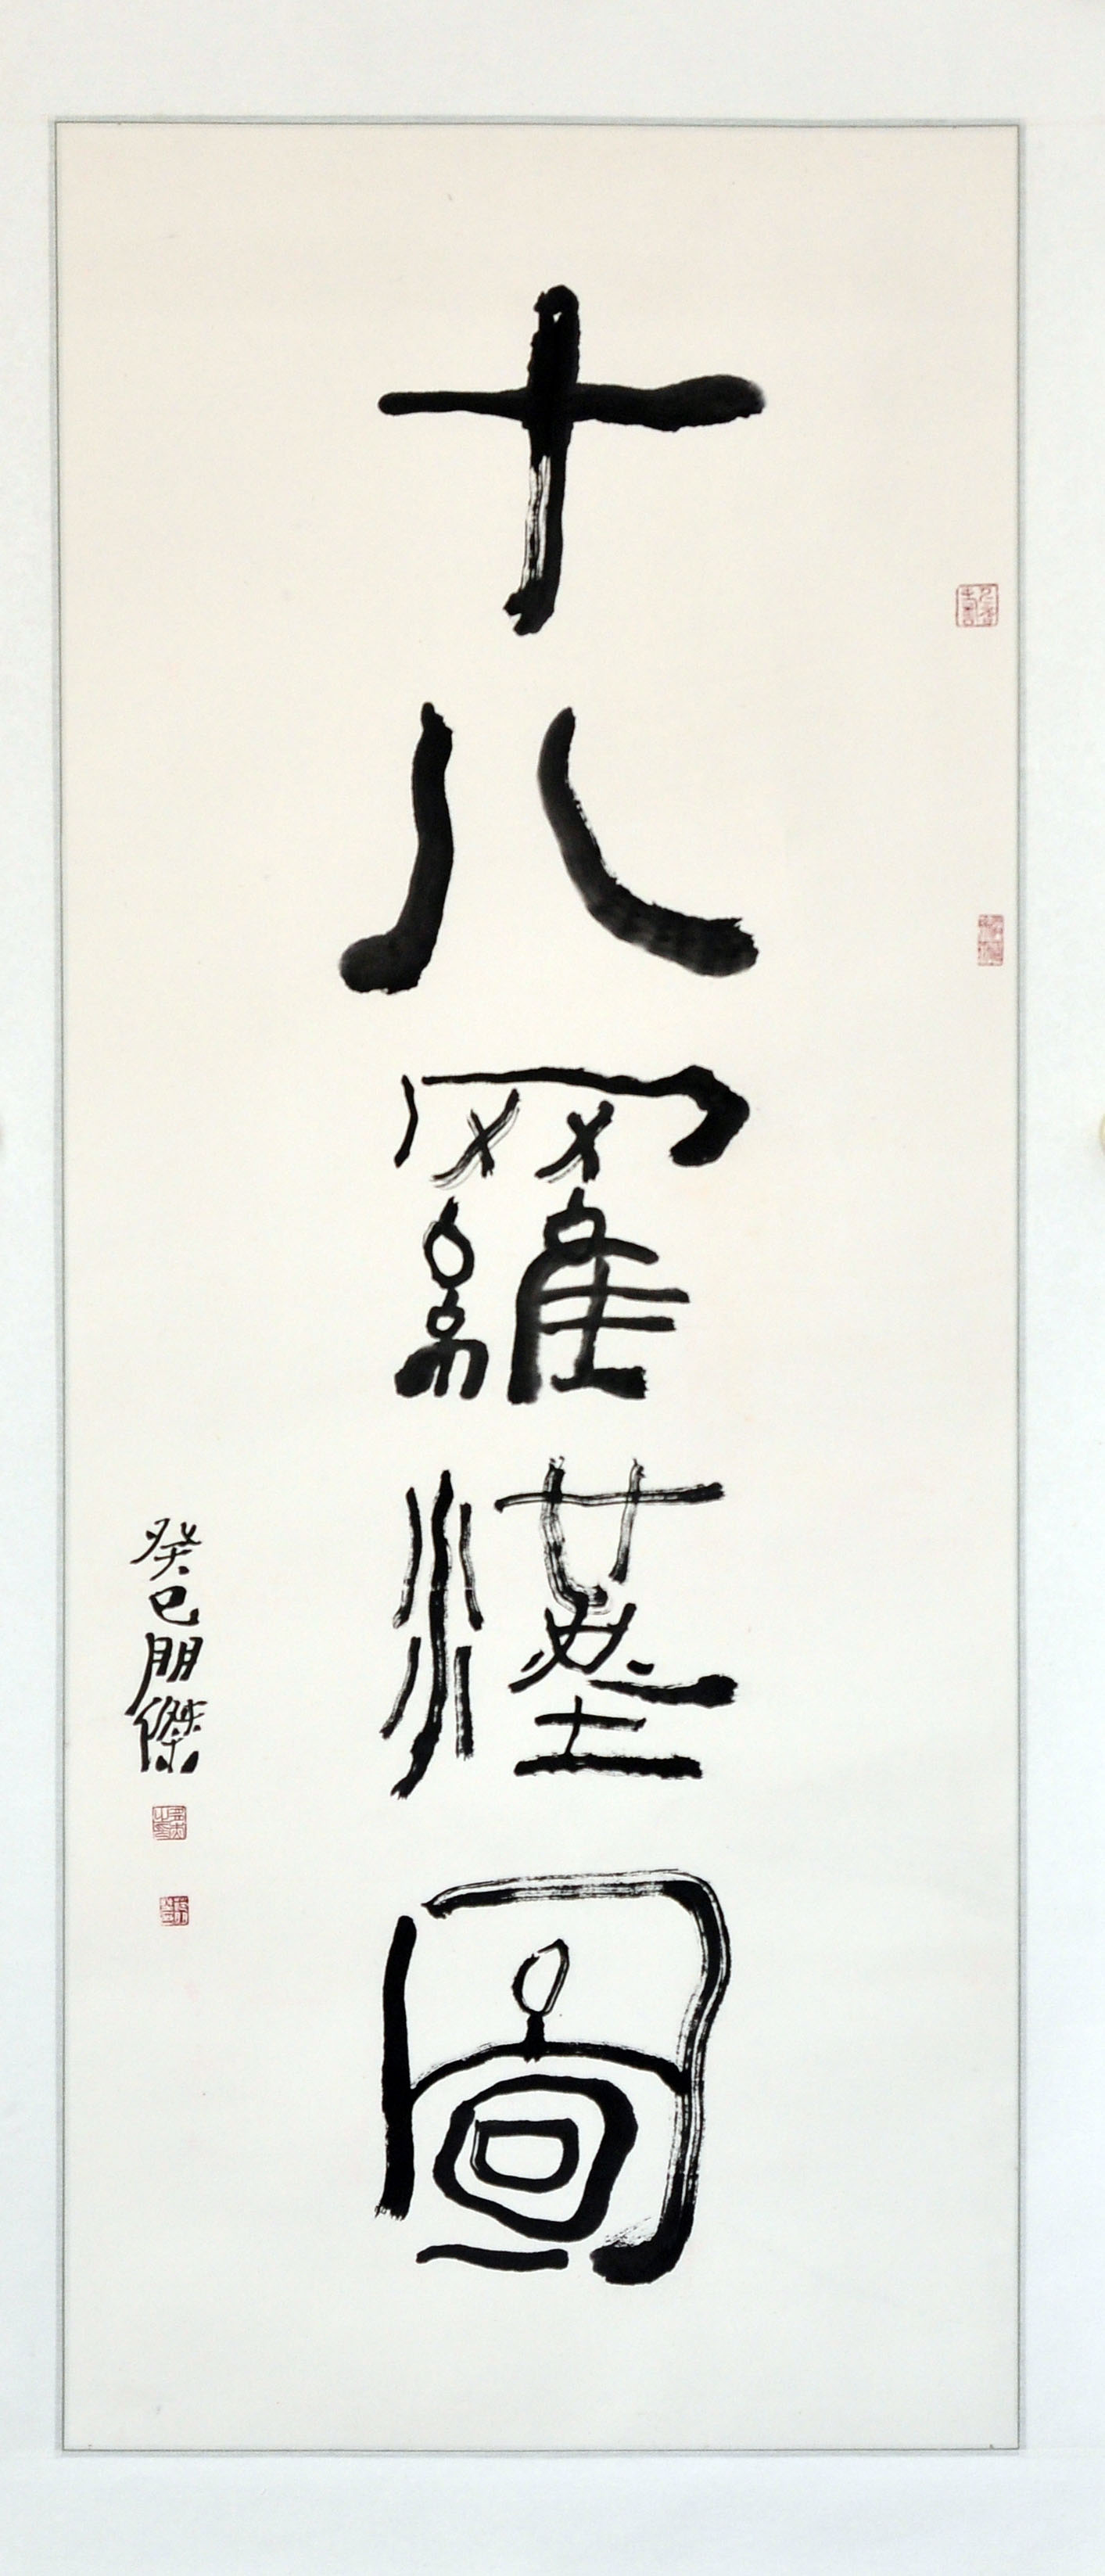 十八羅漢圖
癸巳朋傑